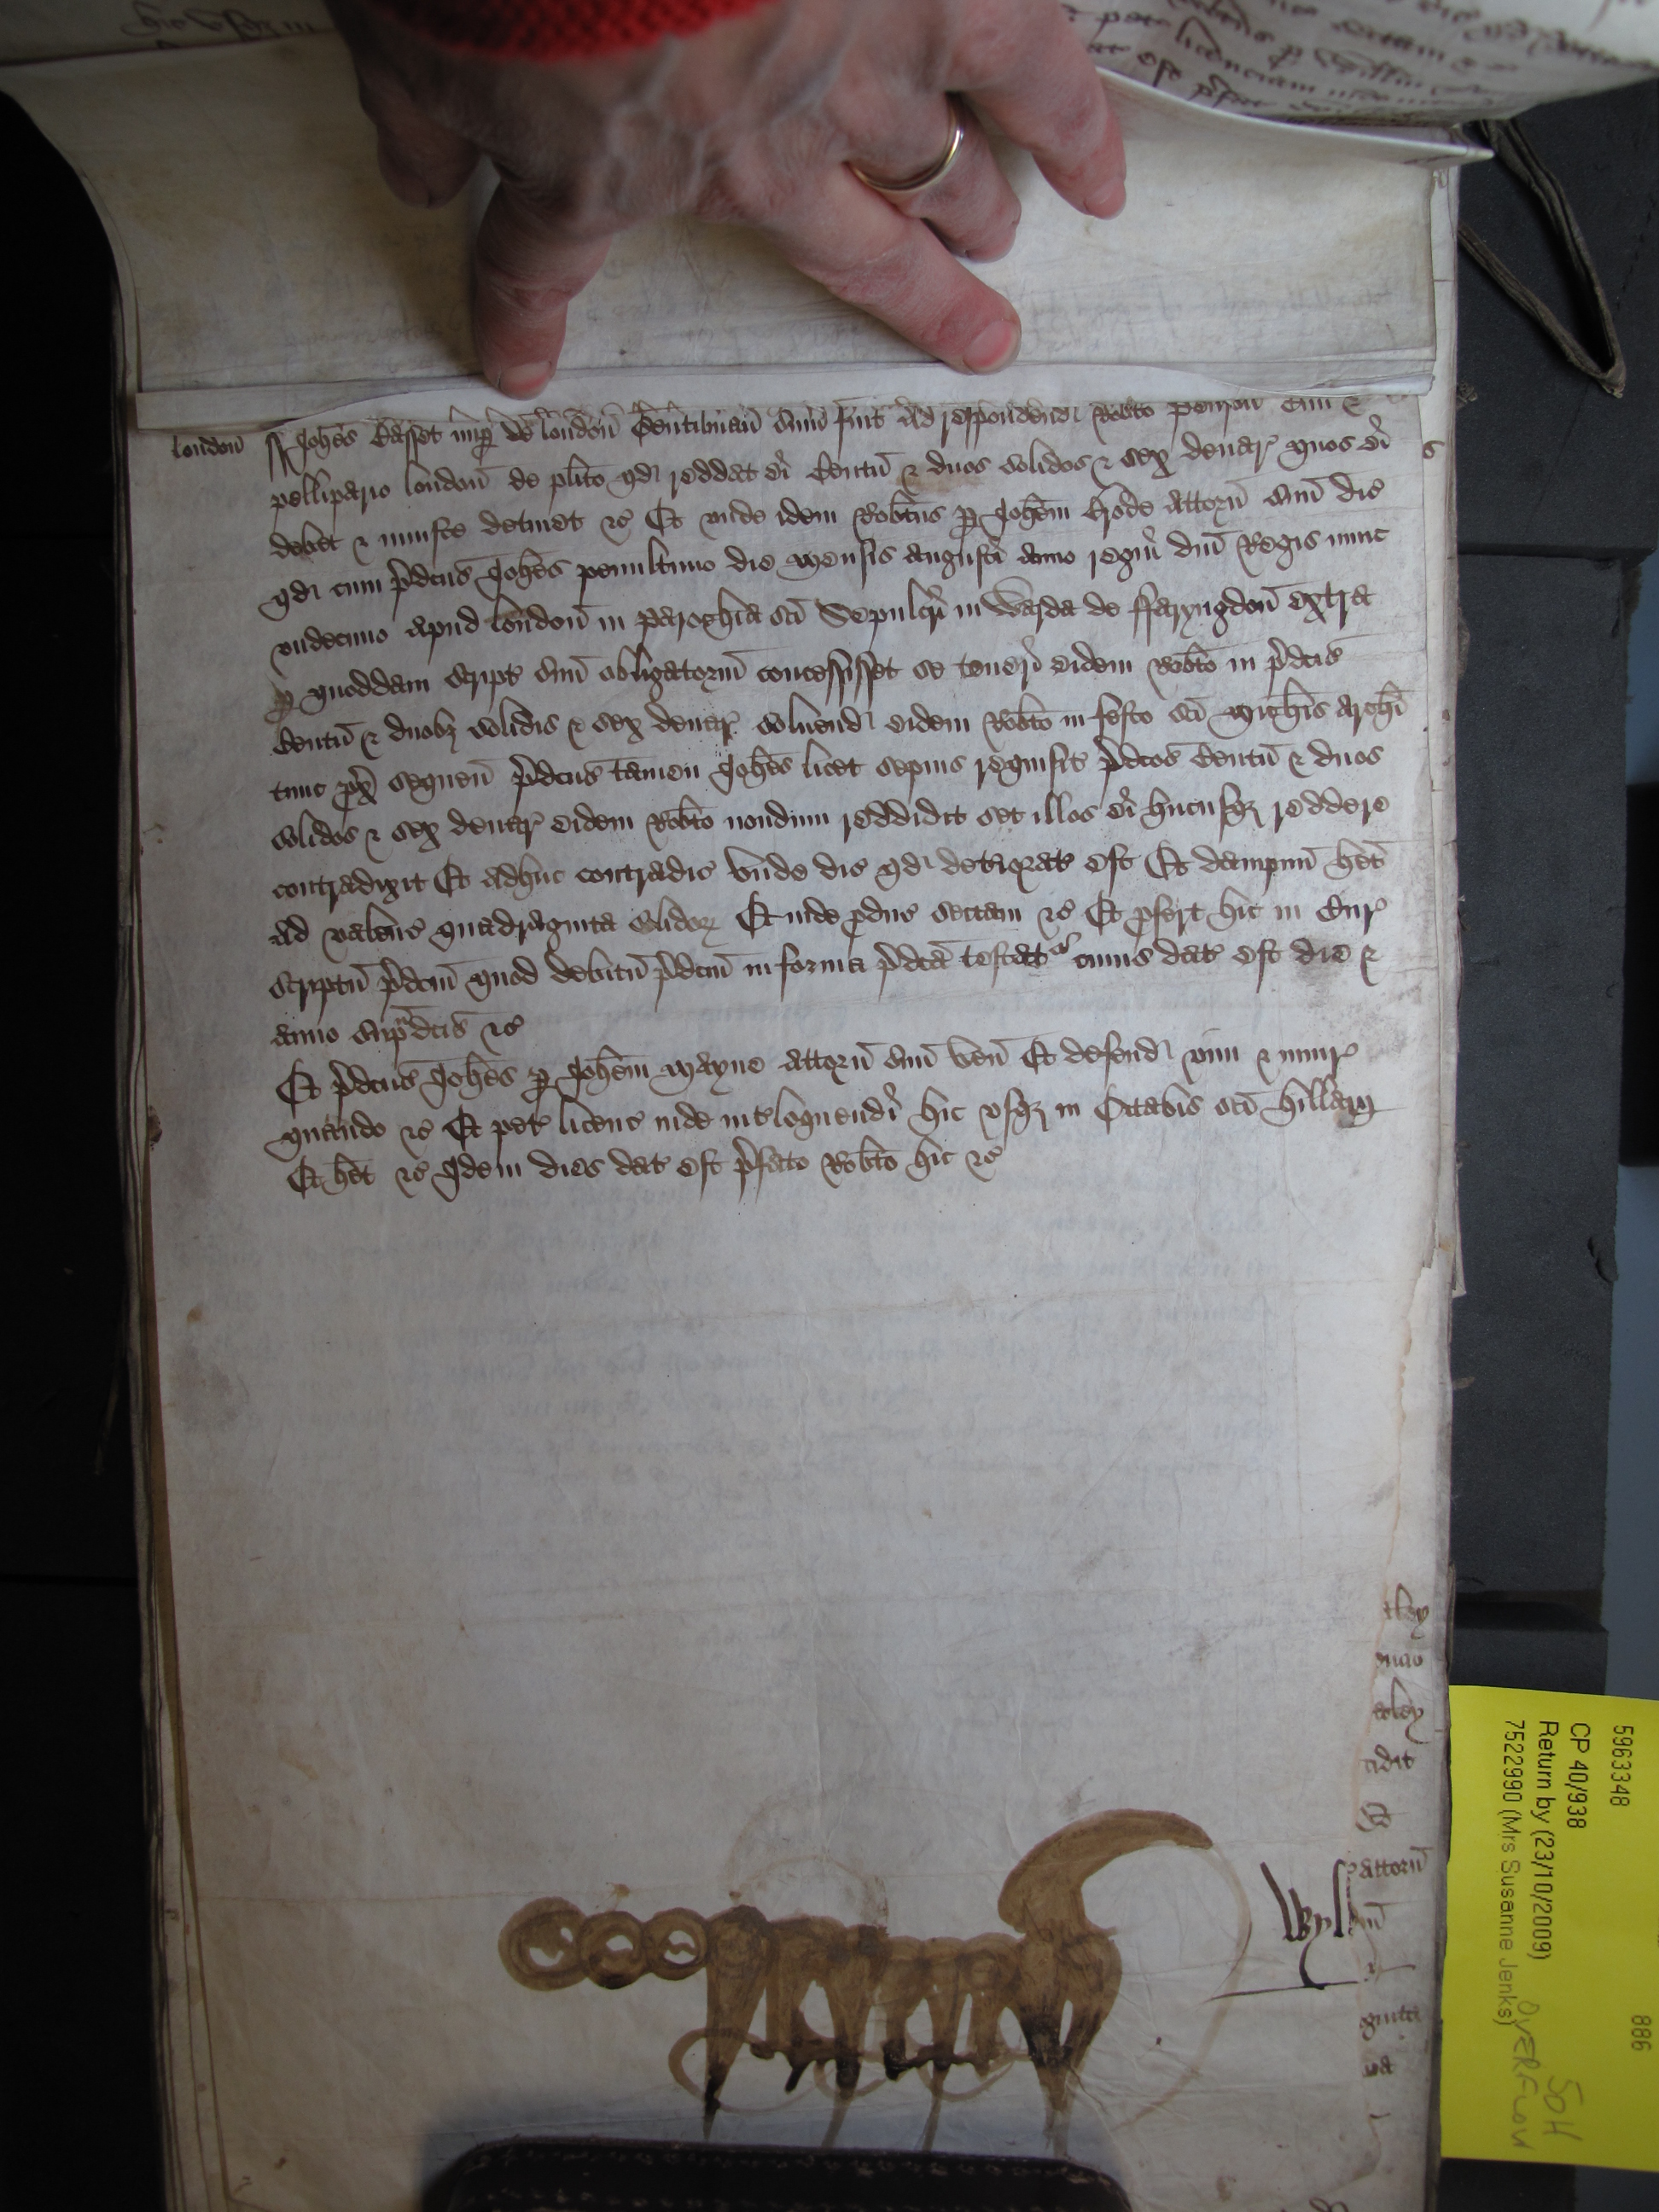 london
Joħes Basset nuꝑ de london Gentilman sūm fuit ad respondend Roƀto penson Ciui &
pellipario london de plito qd reddat ei Centū & duos solidos & sex denar quos ei
debet & iniuste detinet &c Et unde idem Roƀtus ꝑ Joħem Hyde attorn suū dic
qd cum p̄dcus Joħes penultimo die mensis augusti anno regni dni Regis nunc
undecimo apud london in parochia sci Sepulcri in Warda de ffaryngdon extra
ꝑ quoddam script suū obligatoriū concessisset se teneri eidem Roƀto in p̄dcis
Centū & duobȝ solidis & sex denar soluend eidem Roƀto in festo sci Micħis Archi
tunc ꝓx sequen p̄dcus tamen Joħes licet sepius requisit p̄dcos Centū & duos
solidos & sex denar eidem Roƀto nondum reddidit set illos ei hucusqȝ reddere
contradixit Et adhuc contradic unde dic qd deteriorat est Et dampnū het
ad valenc quadraginta solidoꝝ Et inde ꝓduc sectam &c Et ꝓfert hic in Cur
scriptū p̄dcm quod debitū p̄dcm in forma p̄dca testatr cuius dat est die &
anno supradcis &c
Et p̄dcus Joħes ꝑ Joħem Mayne attorn suū ven Et defend vim & iniur
quando &c Et pet licenc inde int̄loquendi hic usqȝ in Octabis sci Hillarij
Et het &c Idem dies dat est p̄fato Roƀto hic &c
attorn
5963348
886
CP 40/938
Return by (23/10/2009)
7522990 (Mrs Susanne Jenks)
SOH
OVERFLOW